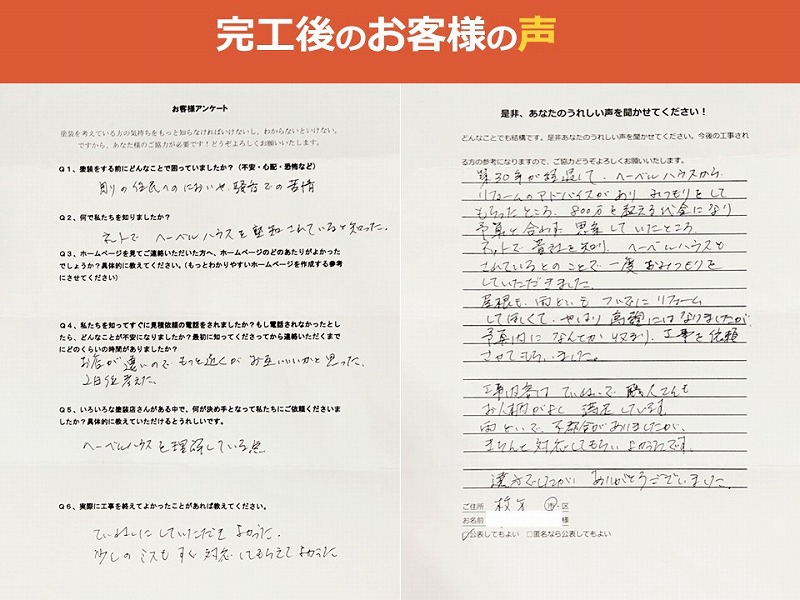 完工後のお客様の声
お客様アンケート
塗装を考えている方の気持ちをもっと知らなければいけないし、わからないといけない。
ですから、あなた様のご協力が必要です！どうぞよろしくお願いいたします。
Q1、塗装をする前にどんなことで困っていましたか？（不安・心配・恐怖など）
周りの住民へのにおいや騒音での苦情
Q2、何で私たちを知りましたか？
ネットで ヘーベルハウスを塗装されていると知った。
Q3、ホームページを見てご連絡いただいた方へ、ホームページのどのあたりがよかった
でしょうか？具体的に教えてください。（もっとわかりやすいホームページを作成する参考
にさせてください）
Q4、私たちを知ってすぐに見積依頼の電話をされましたか？もし電話されなかったとし
たら、どんなことが不安になりましたか？最初に知ってくださってから連絡いただくまで
にどのくらいの時間がありましたか？
お店が遠いので もっと近くが お互いいいかと思った、
2日位考えた。
Q5、いろいろな塗装店さんがある中で、何が決め手となって私たちにご依頼くださいま
したか？具体的に教えていただけるとうれしいです。
ヘーベルハウスを理解している点
Q6、実際に工事を終えてよかったことがあれば教えてください。
ていねいにしていただき よかった、
少しのミスも すぐ対応してもらえてよかった
是非、あなたのうれしい声を聞かせてください！
どんなことでも結構です。是非あなたのうれしい声を聞かせてください。今後の工事され
る方の参考になりますので、ご協力どうぞよろしくお願いいたします。
築30年が経過して、ヘーベルハウスから
リフォームのアドバイスがあり みつもりをして
もらったところ、800万を超える代金になり
予算と合わず 思案していたところ
ネットで 貴社を知り、ヘーベルハウスも
されているとのことで 一度おみつもりを
していただきました。
屋根も、雨といも ついでに リフォーム
してほしくて、やはり 高額にはなりましたが
予算内になんとか収まり、工事を依頼
させてもらいました。
工事内容は ていねいで 職人さんも
お人柄がよく 満足しています。
雨といで、不都合がありましたが、
きちんと対応してもらい よかったです。
遠方でしたが ありがとうございました。
ご住所 枚方 市・区
お名前 様
☑公表してもよい □匿名なら公表してもよい